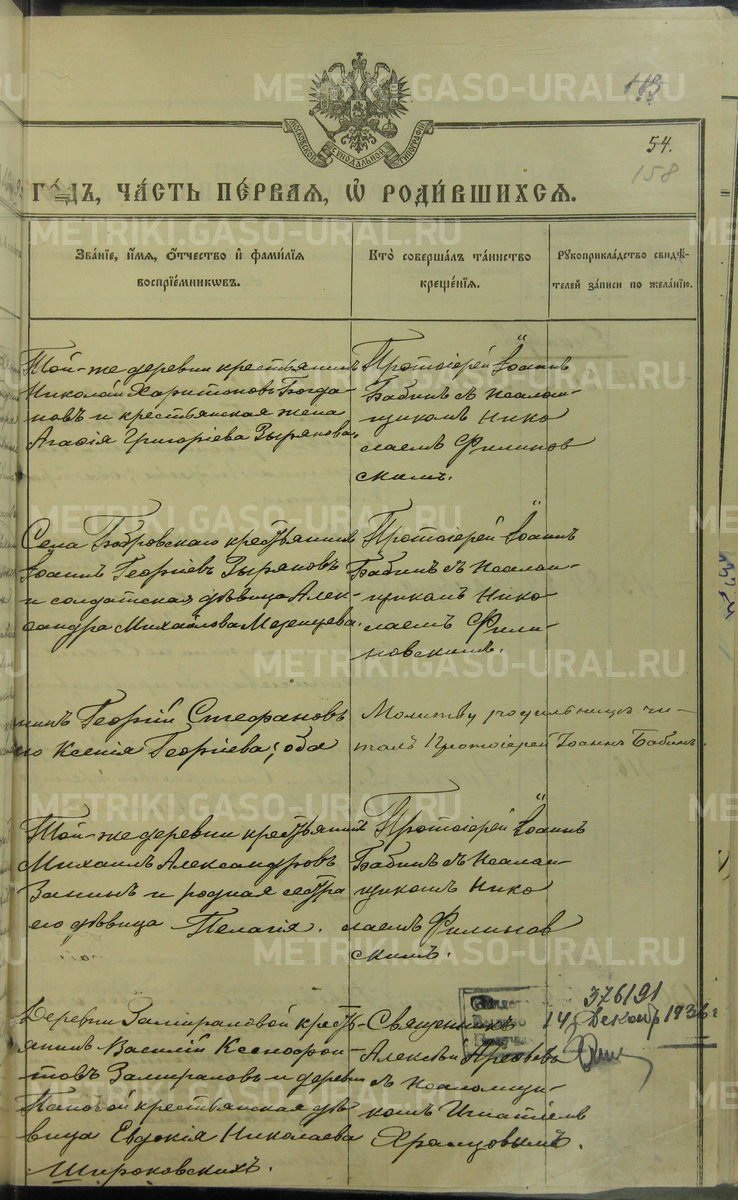 54.
158
МОСКОВСКОЙ СѴНОДАЛЬНОЙ ТИПОГРАФІИ
ГО́ДЪ, ЧА́СТЬ ПЕ́РВАЯ, Ѡ҆ РОДИ́ВШИХСѦ.
Зва́нїе, и҆́мѧ, ѻ҆́тчество и҆ фами́лїѧ
воспрїе́мникѡвъ.
Кто̀ соверша́лъ та́инство
креще́нїѧ.
Рꙋкоприкла́дство свидѣ́-
телей за́писи по жела́нїю.
Той-же деревни крестьянинъ
Николай Харитоновъ Богда-
новъ и крестьянская жена
Агафія Григоріева Зырянова.
Протоіерей Іоаннъ
Бабинъ съ псалом-
щикомъ Нико
лаемъ Филинов
скимъ.
Села Бобровскаго крестьянинъ
Іоаннъ Георгіевъ Зыряновъ
и солдатская дѣвица Алек-
сандра Михайлова Мезенцева.
Протоіерей Іоаннъ
Бабинъ съ псалом-
щикомъ Нико
лаемъ Фили-
новскимъ.
нинъ Георгій Стефановъ
его Ксенія Георгіева; оба
Молитву родильницѣ чи-
талъ Протоіерей Іоаннъ Бабинъ.
Той-же деревни крестьянинъ
Михаилъ Александровъ
Занинъ и родная сестра
его дѣвица Пелагія.
Протоіерей Іоаннъ
Бабинъ съ псалом-
щикомъ Нико
лаемъ Филинов
скимъ.
Деревни Замираловой кресть-
янинъ Василій Ксенофон-
товъ Замираловъ и деревни
Пановой крестьянская дѣ-
вица Евдокія Николаева
Широковскихъ.
Священникъ
Алексѣй
съ псаломщи-
комъ Игнатіемъ
Храмцовымъ.
376191
14 Декабр 1936 г
METRIKI.GASO-URAL.RU